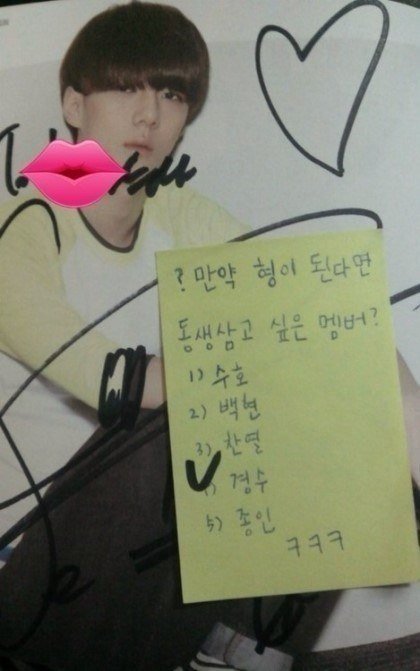 To.
? 만약 형이 된다면
동생삼고 싶은 멤버?
1) 수호
2) 백현
3) 찬열
4) 경수
5) 종인
ㅋㅋㅋ